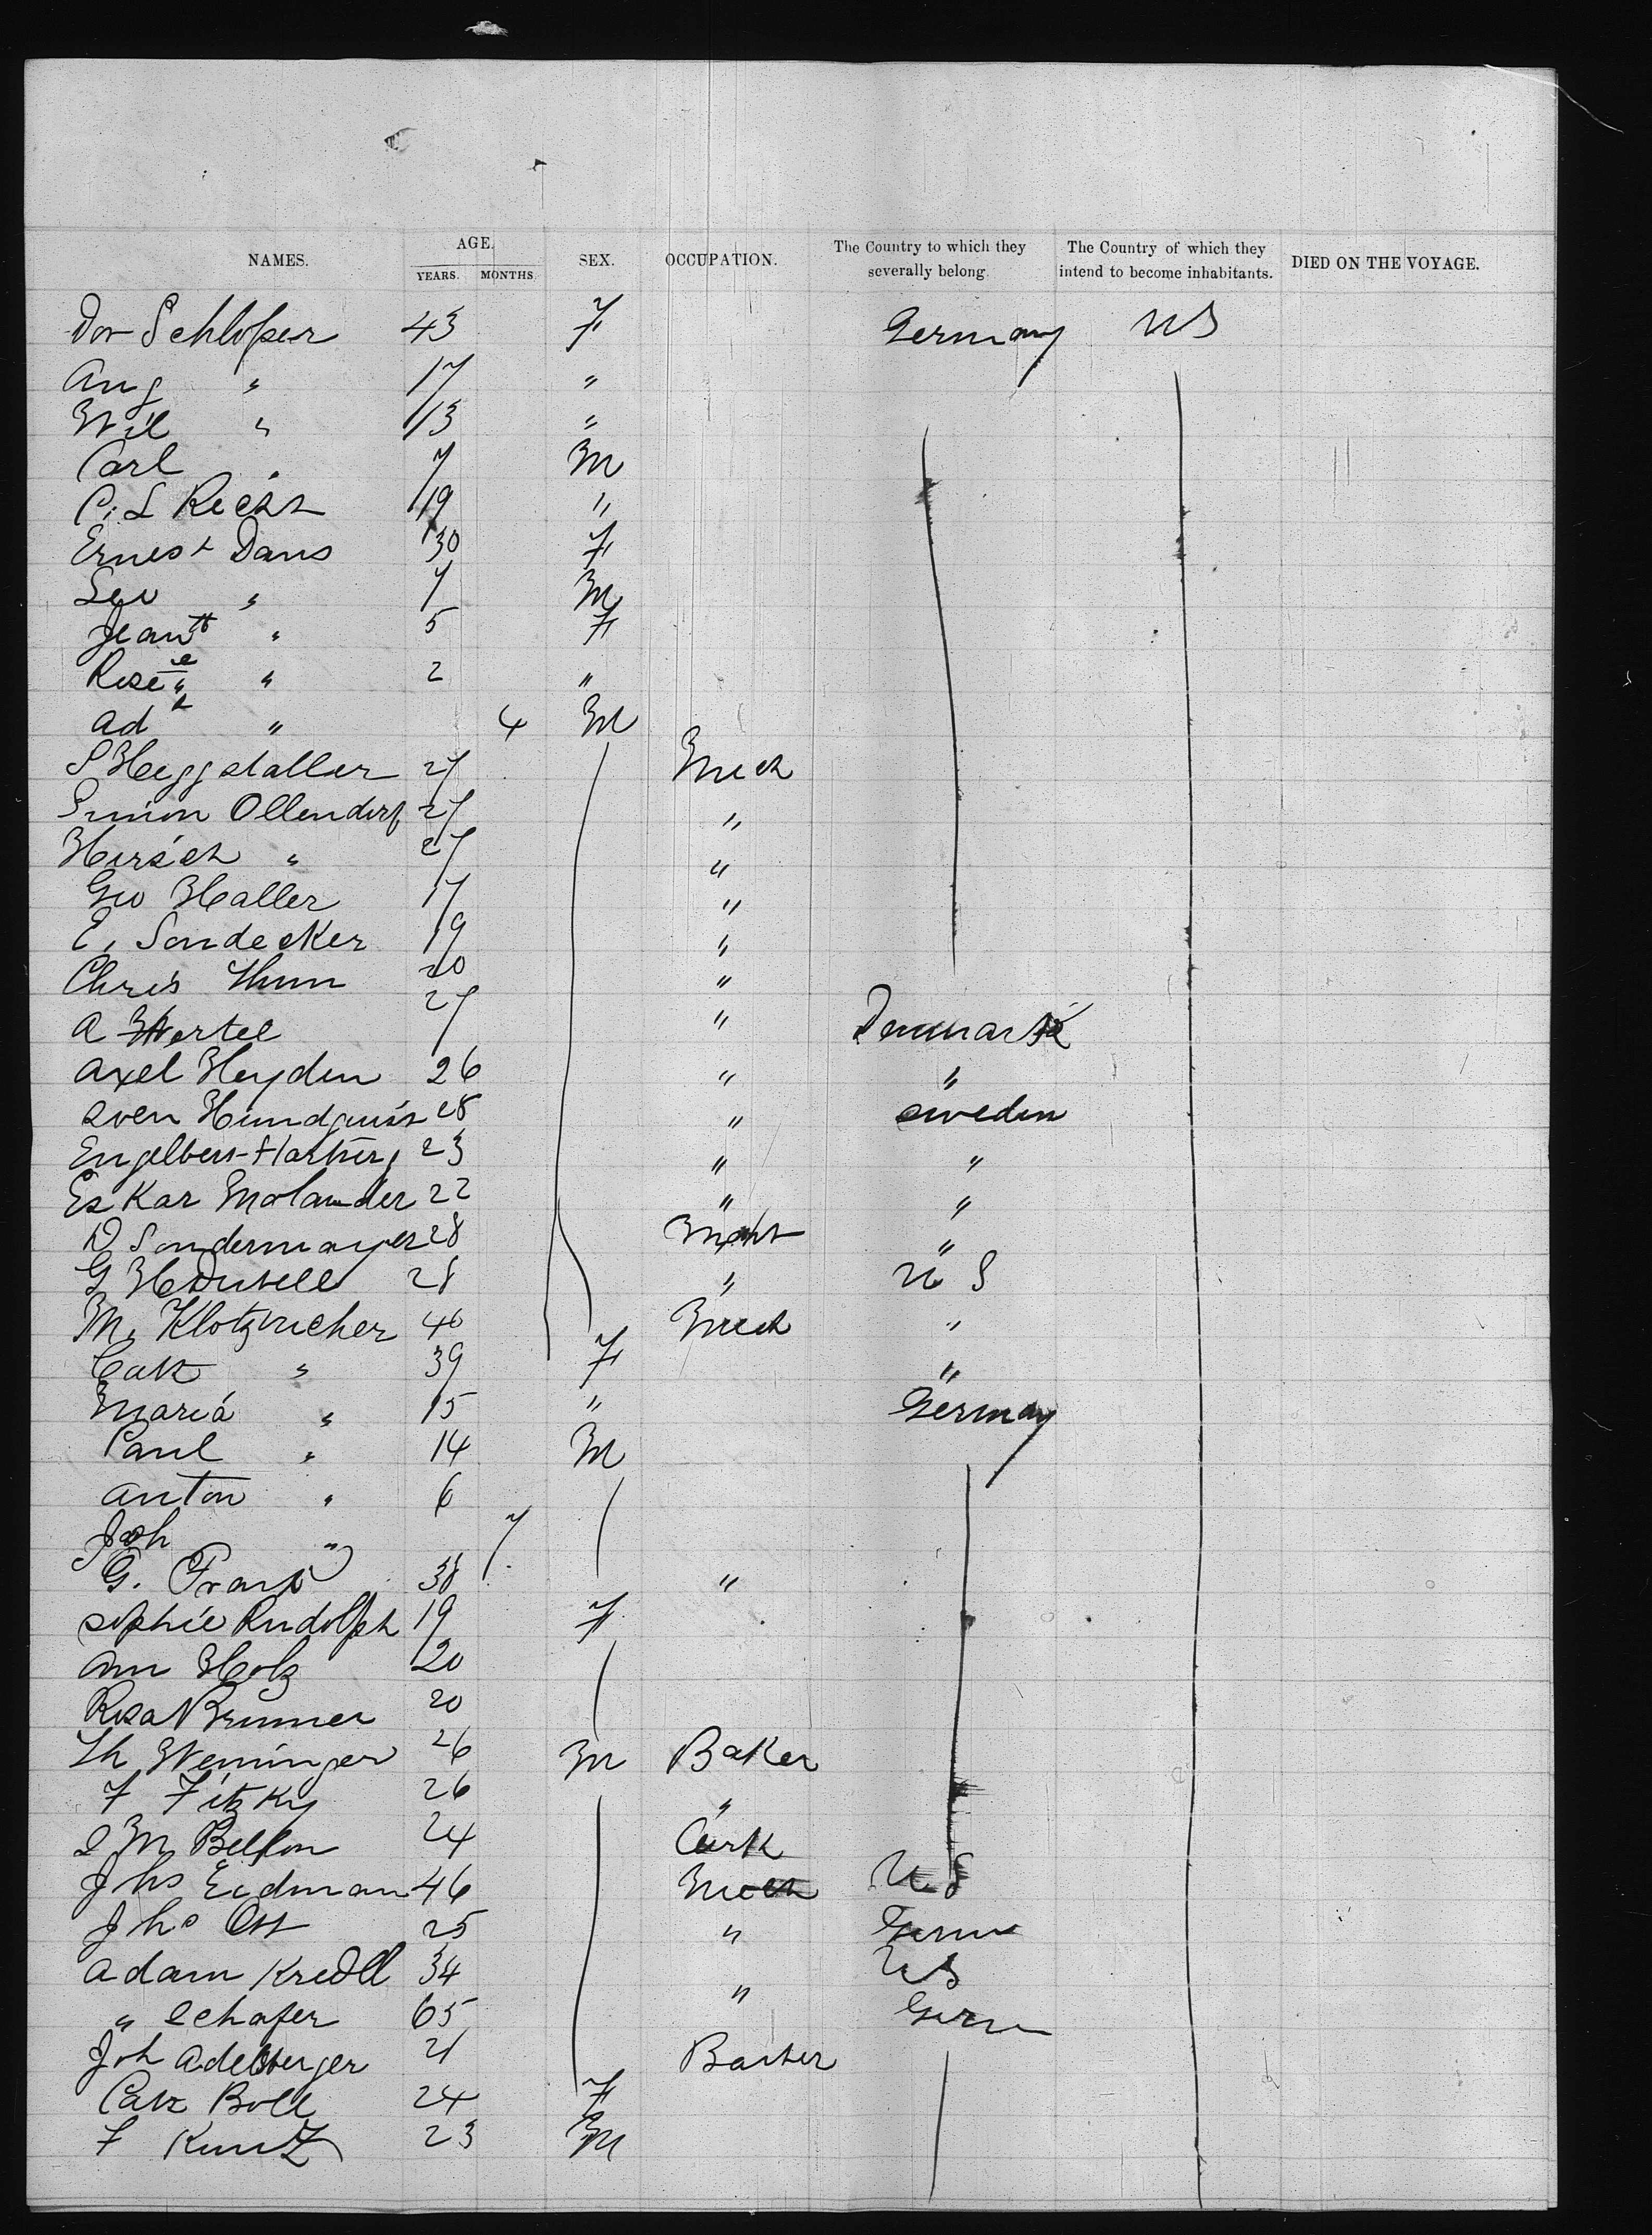 NAMES. AGE. YEARS. MONTHS. SEX. OCCUPATION. The Country to which they severally belong. The Country of which they intend to become inhabitants. DIED ON THE VOYAGE.
Dor Schloßer 43 F Germany US
Aug " 17 "
Wil " 13 "
Carl " 7 M
C. L 19 "
Ernest Daus 30 F
Leo " 7 M
Jeantt " 5 F
" 2 "
Ad " 4 M
S Heggstaller 27 Mech
Simon Ollendorf 27 "
Hirsch " 27 "
Geo Haller 17 "
E. Sondecker 19 "
Chris Thum 20 "
A Hertel 27 " Denmark
Axel Heyden 26 " "
Sven Hundquist 28 " Sweden
Engelbert Hartwig 23 " "
Eskar Molander 22 " "
D Sondermayer 28 Mcht "
G 28 " U S
M. 40 Mech "
Cath " 39 F "
Maria " 15 " Germany
Paul " 14 M
Anton " 6
Joh " 7
G. 38 "
Sophie Rudolph 19 F
Ann Holz 20
Rosa Brunner 20
Th Weninger 26 M Baker
F Fitzky 26 "
S M 24 Clerk
Jhs Eidman 46 Mech U S
Jhs Ott 25 " Germ
Adam 34 " US
" Schafer 65 Germ
Joh Adelberger 21 Barber
Cath Boll 24 F
F Kuntz 23 M